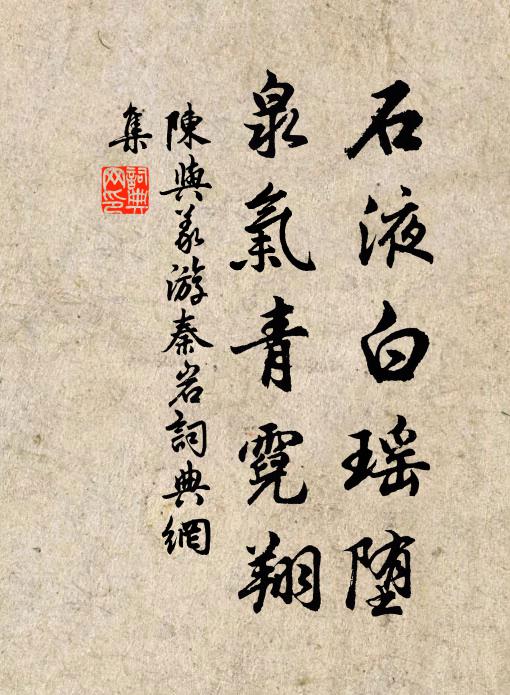 石液白瑶堕
泉氣青霓翔
陳與義游秦岩詞典網
集
詞典網印